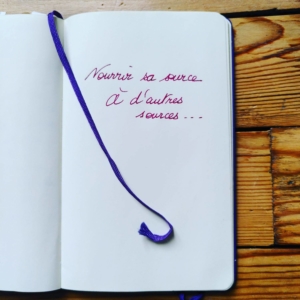 Nourrir sa source
à d'autres
sources...